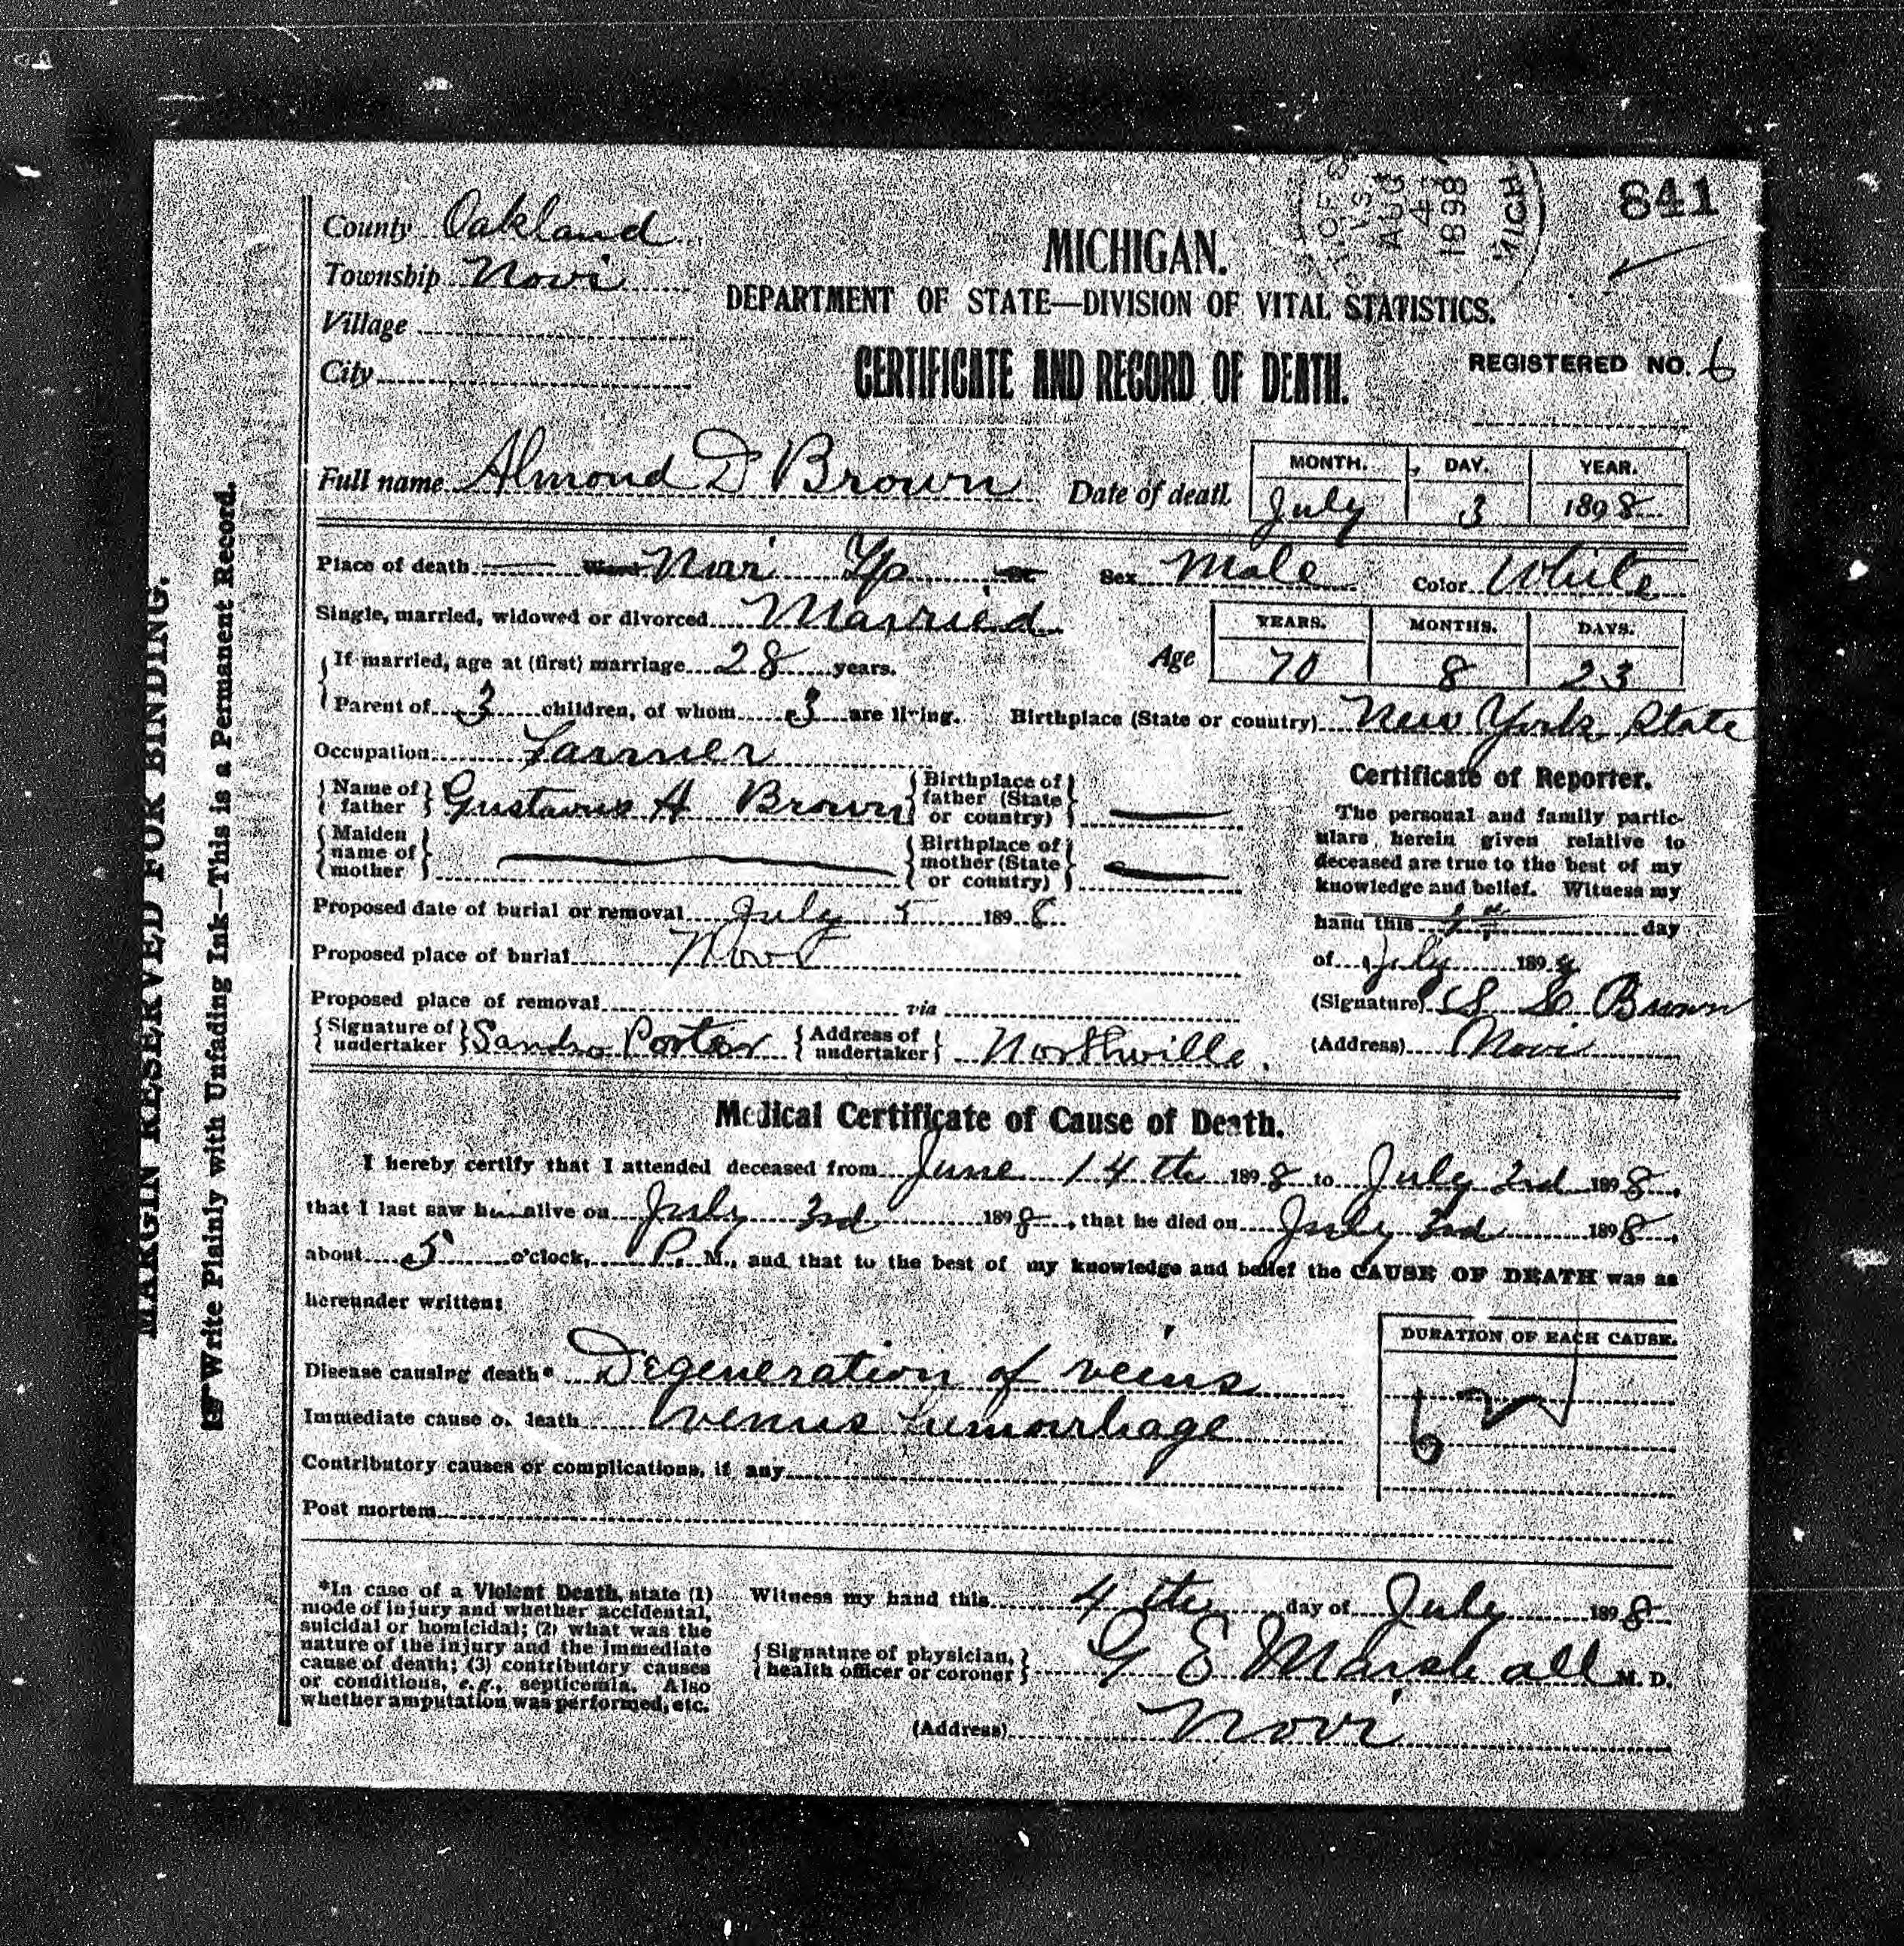 841
AUG
4
1898
MICH
County Oakland
Township Novi
Village
City
MICHIGAN.
DEPARTMENT OF STATE—DIVISION OF VITAL STATISTICS.
CERTIFICATE AND RECORD OF DEATH.
REGISTERED NO. 6
Full name Almond D Brown Date of death
MONTH. DAY. YEAR.
July 3 1898
Place of death Novi Tp Sex Male Color White
Single, married, widowed or divorced Married
If married, age at (first) marriage 28 years.
Age
YEARS. MONTHS. DAYS.
70 8 23
Parent of 3 children, of whom 3 are living. Birthplace (State or country) New York State
Occupation Farmer
Name of father Gustavus A Brown Birthplace of father (State or country) —
Maiden name of mother — Birthplace of mother (State or country) —
Proposed date of burial or removal July 5 1898
Proposed place of burial Novi
Proposed place of removal via
Signature of undertaker Porter Address of undertaker Northville
Certificate of Reporter.
The personal and family partic-
ulars herein given relative to
deceased are true to the best of my
knowledge and belief. Witness my
hand this day
of July 189
(Signature) Brown
(Address) Novi
Medical Certificate of Cause of Death.
I hereby certify that I attended deceased from June 14th 1898 to July 3rd 1898,
that I last saw him alive on July 3rd 1898, that he died on July 3rd 1898,
about 5 o'clock, P. M., and that to the best of my knowledge and belief the CAUSE OF DEATH was as
hereunder written:
DURATION OF EACH CAUSE.
Disease causing death* Degeneration of veins
Immediate cause of death venus hemorrhage
Contributory causes or complications, if any
Post mortem
*In case of a Violent Death, state (1)
mode of injury and whether accidental,
suicidal or homicidal; (2) what was the
nature of the injury and the immediate
cause of death; (3) contributory causes
or conditions, e.g., septicemia. Also
whether amputation was performed, etc.
Witness my hand this 4th day of July 1898
Signature of physician, health officer or coroner G E Marshall M. D.
(Address) Novi
MARGIN RESERVED FOR BINDING.
Write Plainly with Unfading Ink—This is a Permanent Record.